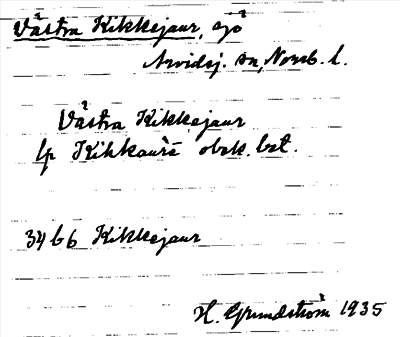 Västra Kikkejaur, sjö
Arvidsj. sn, Norrb. l.
Västra Kikkejaur
lp Kihkaurē obek. bet.
34 b6 Kikkejaur
H. Grundström 1935